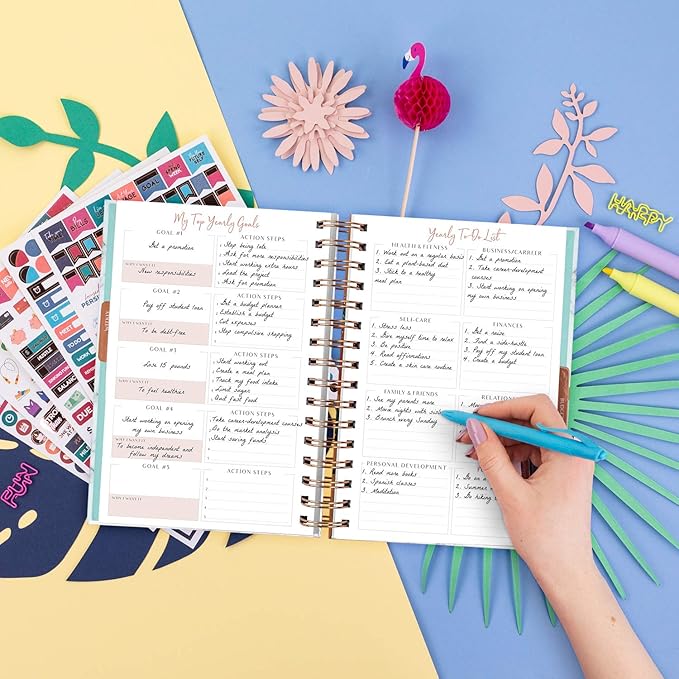 My Top Yearly Goals
GOAL #1
Get a promotion
WHY I WANT IT
New responsibilities
ACTION STEPS
Stop being late
Ask for more responsibilities
Start working extra hours
Lead the project
Ask for promotion
GOAL #2
Pay off student loan
WHY I WANT IT
To be debt-free
ACTION STEPS
Get a budget planner
Establish a budget
Cut expenses
Stop compulsive shopping
GOAL #3
Lose 15 pounds
WHY I WANT IT
To feel healthier
ACTION STEPS
Start working out
Create a meal plan
Track my food intake
Limit sugar
Quit fast food
GOAL #4
Start working on opening
my own business
WHY I WANT IT
To become independent and
follow my dreams
ACTION STEPS
Take career-development courses
Do the market analysis
Start saving funds
GOAL #5
WHY I WANT IT
ACTION STEPS
Yearly To-Do List
HEALTH & FITNESS
1. Work out on a regular basis
2. Eat a plant-based diet
3. Stick to a healthy
meal plan
BUSINESS/CARREER
1. Get a promotion
2. Take career-development
courses
3. Start working on opening
my own business
SELF-CARE
1. Stress less
2. Give myself time to relax
3. Be positive
4. Read affirmations
5. Create a skin care routine
FINANCES
1. Get a raise
2. Find a side-hustle
3. Pay off my student loan
4. Create a budget
FAMILY & FRIENDS
1. See my parents more
2. Movie nights with
3. Brunch every Sunday
PERSONAL DEVELOPMENT
1. Read more books
2. Spanish classes
3. Meditation
1. Go on
Summer
2. Go hiking
HAPPY
FUN
GOAL
SELF
MEETING
TO DO
BALANCE
DUE